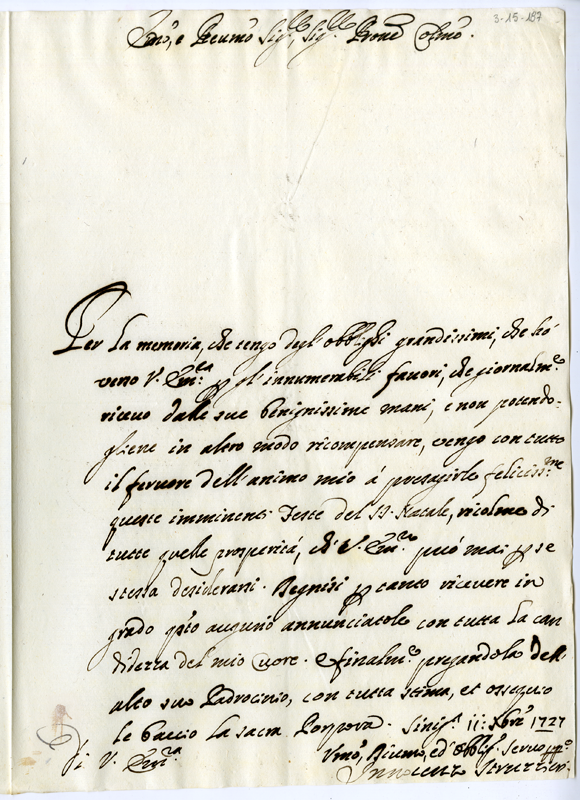 3-15-187
Emo, e Reumo Sigre, Sigre Prone Colmo.
Per la memoria, che tengo degl'obblighi grandissimi, che hò
verso V. Emza p gl'innumerabili favori, che giornalmte
riceuo dalle sue benignissime mani, e non potendo-
gliene in altro modo ricompensare, vengo con tutto
il feruore dell'animo mio á presagirle felicissme
queste imminenti Feste del SS. Natale, ricolme di
tutte quelle prosperitá, che V. Emza può mai p se
stessa desiderarsi. Degnisi p tanto ricevere in
grado qsto augurio annunciatole con tutta la can
didezza del mio Cuore. E finalmte pregandola dell'
alto suo Padrocinio, con tutta stima, et ossequio
le baccio la sacra Porpora. Sinigla 11: Xbre 1727
Di V. Emza
Vmo, Diumo, ed' Obbligmo Seruo
Innocenzo